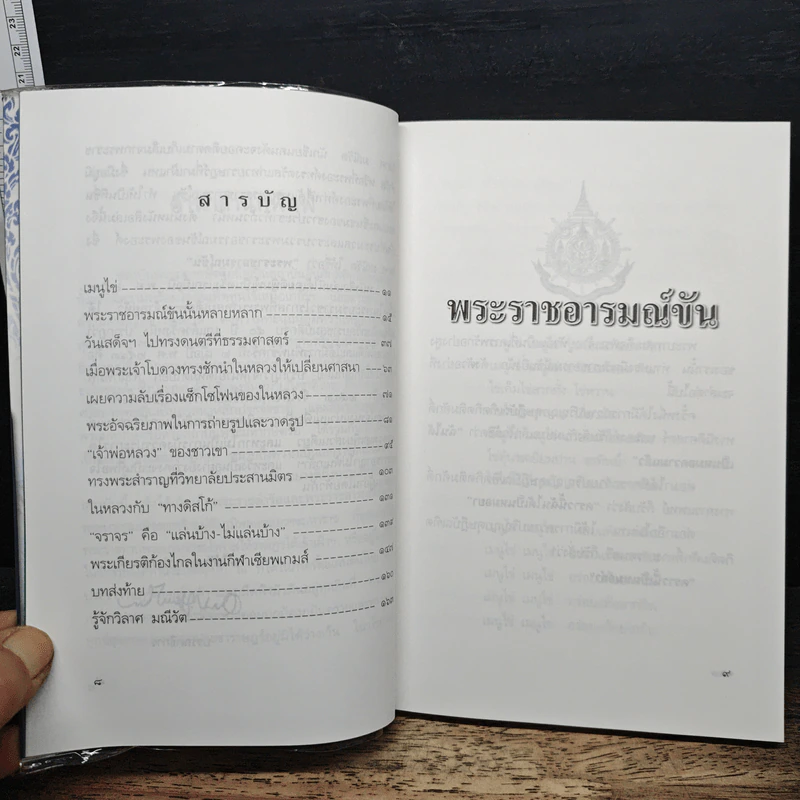 23
22
21
สารบัญ
เมนูไข่ ๑๑
พระราชอารมณ์ขันนั้นหลายหลาก ๑๕
วันเสด็จฯ ไปทรงดนตรีที่ธรรมศาสตร์ ๓๗
เมื่อพระเจ้าโบดวงทรงชักนำในหลวงให้เปลี่ยนศาสนา ๖๓
เผยความลับเรื่องแซ็กโซโฟนของในหลวง ๗๑
พระอัจฉริยภาพในการถ่ายรูปและวาดรูป ๘๑
“เจ้าพ่อหลวง” ของชาวเขา ๙๕
ทรงพระสำราญที่วิทยาลัยประสานมิตร ๑๐๓
ในหลวงกับ “ทางดิสโก้” ๑๓๑
“จราจร” คือ “แล่นบ้าง-ไม่แล่นบ้าง” ๑๓๙
พระเกียรติก้องไกลในงานกีฬาเซียพเกมส์ ๑๔๗
บทส่งท้าย ๑๖๐
รู้จักวิลาศ มณีวัต ๑๖๓
๘
พระราชอารมณ์ขัน
๙